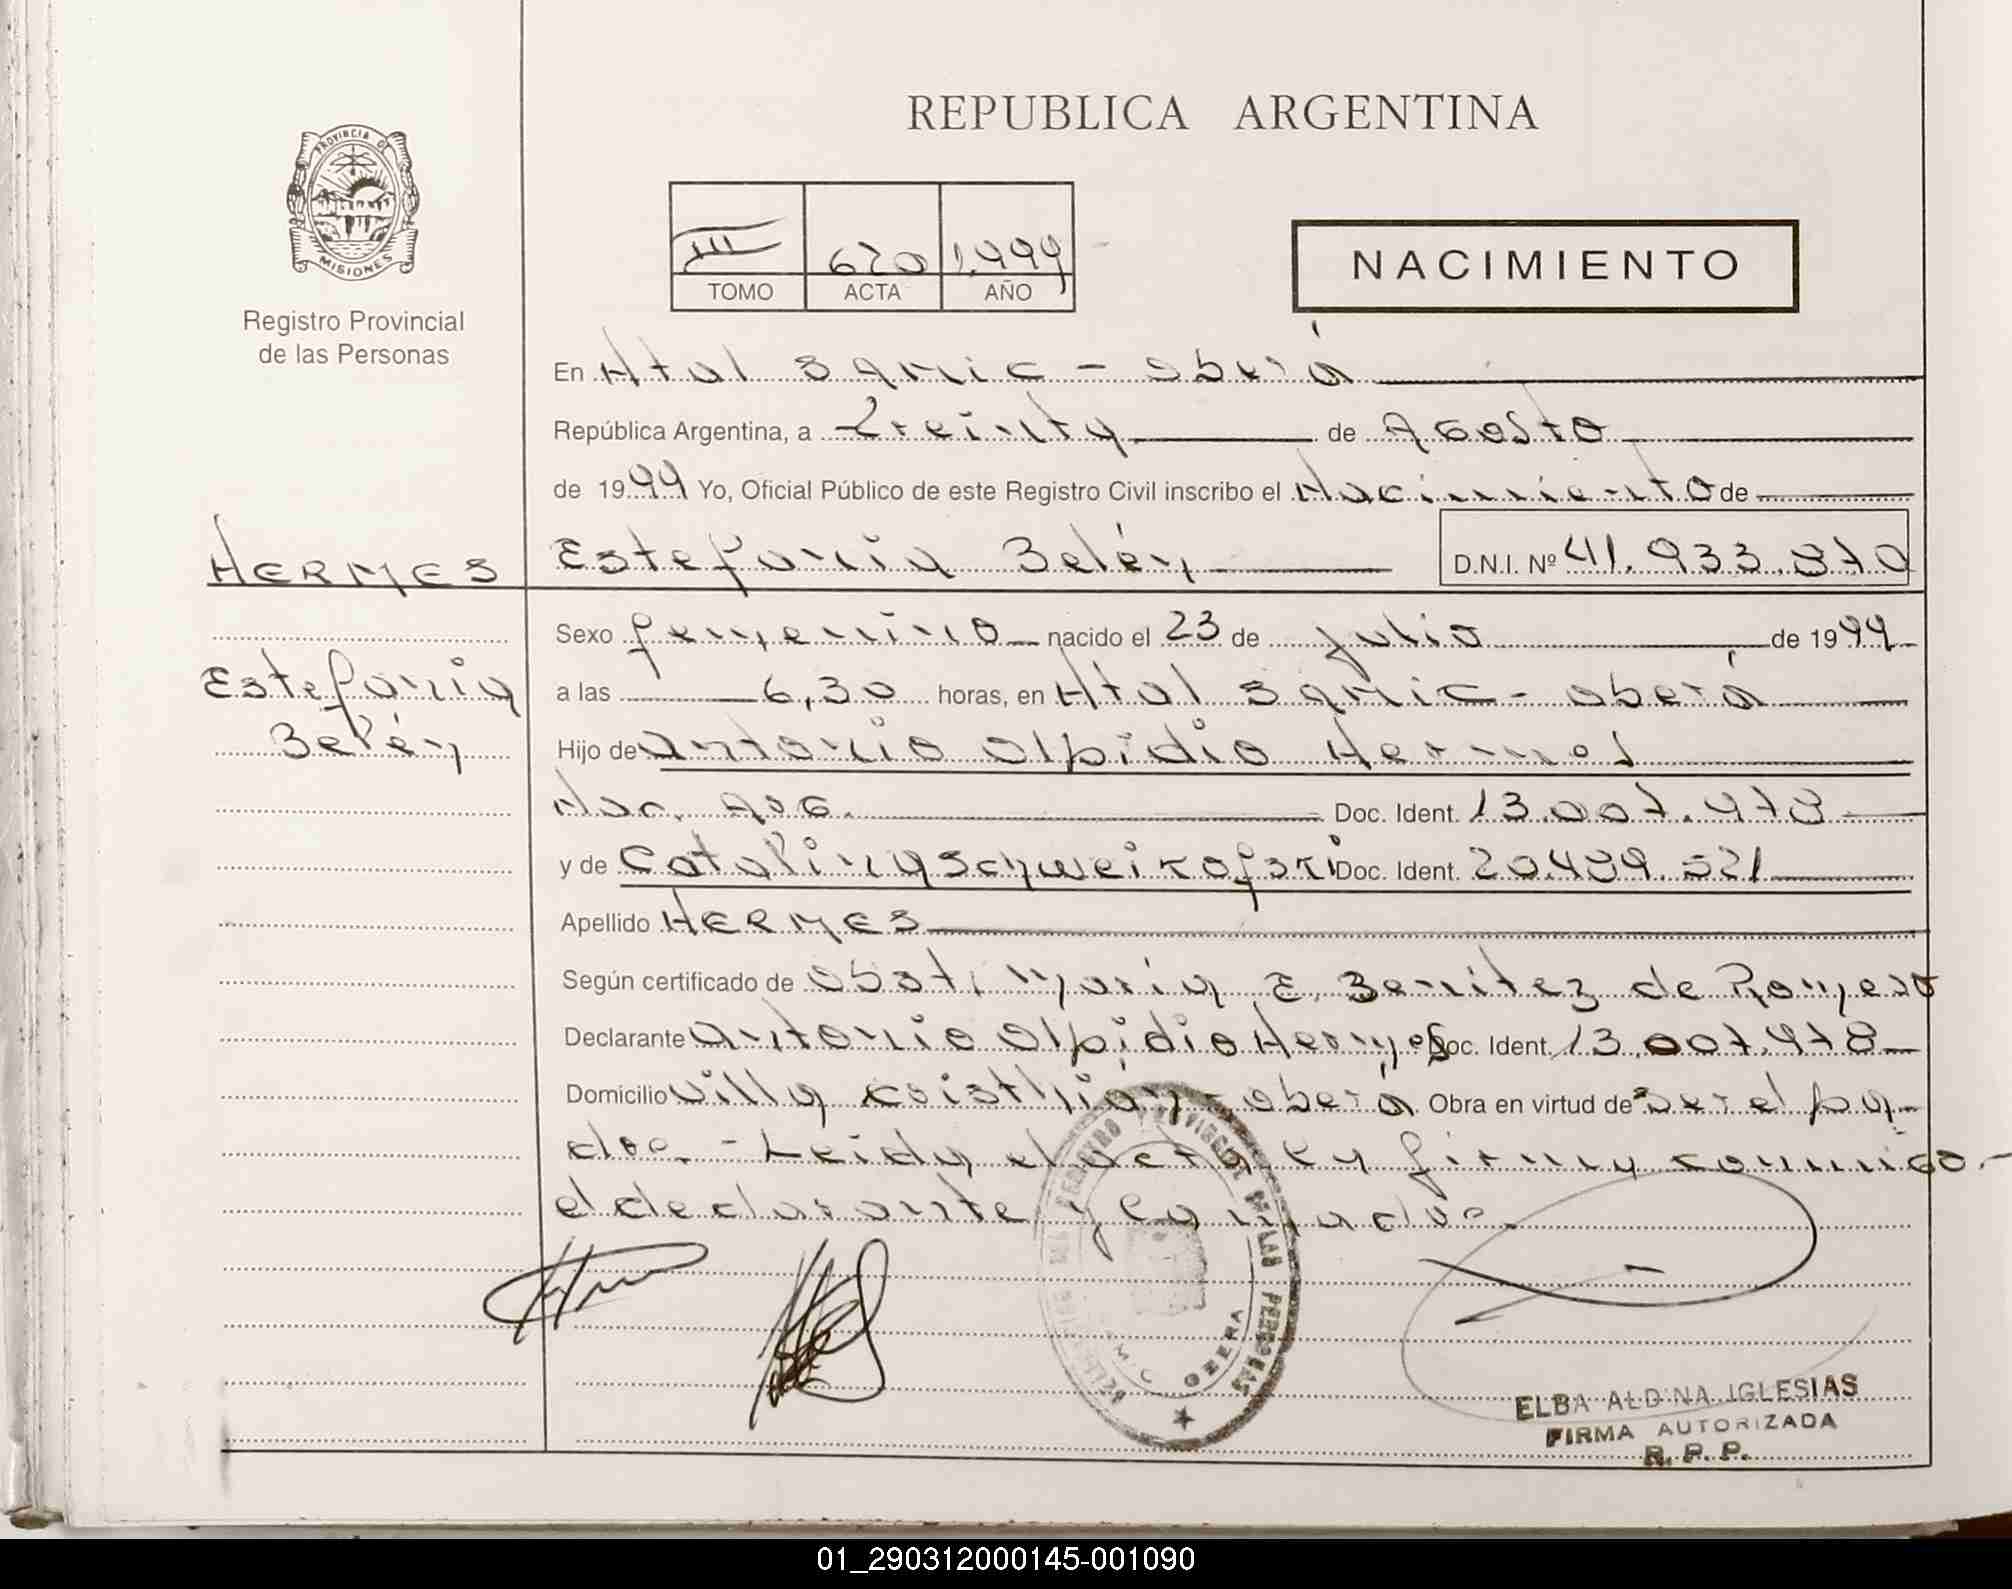 REPUBLICA ARGENTINA
PROVINCIA DE
MISIONES
Registro Provincial
de las Personas
III 620 1.999
TOMO ACTA AÑO
NACIMIENTO
En Htal SAMIC - Oberá
República Argentina, a Treinta de Agosto
de 1999 Yo, Oficial Público de este Registro Civil inscribo el Nacimiento de
HERMES Estefania Belén D.N.I. Nº 41.933.870
Sexo femenino nacido el 23 de julio de 1999
Estefania
Belén
a las 6,30 horas, en Htal SAMIC - Oberá
Hijo de Antonio Olpidio Hermes
Nac. Arg. Doc. Ident. 13.007.478
y de Catalina Doc. Ident. 20.489.521
Apellido HERMES
Según certificado de Obst. Maria E. Benitez de Romero
Declarante Antonio Olpidio Hermes Doc. Ident. 13.007.478
Domicilio Villa Cristhián - Oberá Obra en virtud de ser el pa-
dre. - Leida el acta, la firma conmigo.-
el declarante y
REGISTRO PROVINCIAL DE LAS PERSONAS
OBERA
ELBA ALDINA IGLESIAS
FIRMA AUTORIZADA
R. P. P.
01_290312000145-001090